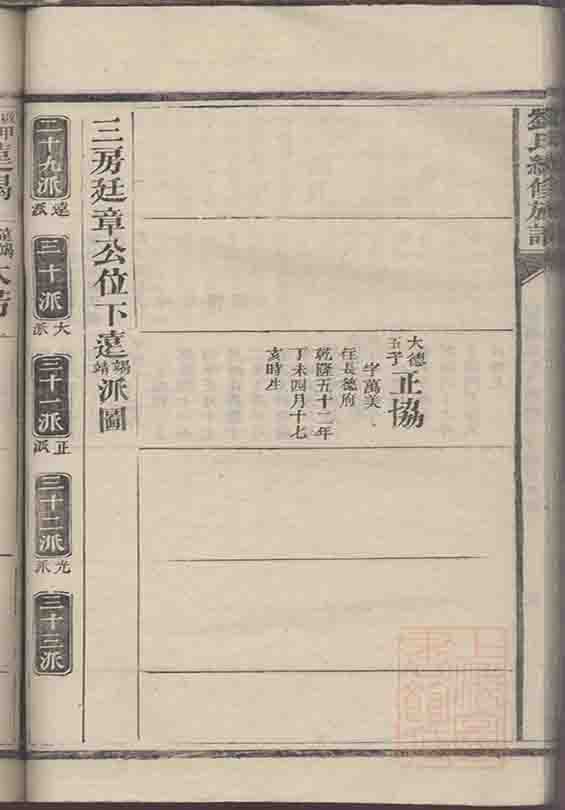 劉氏續修族譜
大德五子 正協
字萬美
任長德府
乾隆五十二年
丁未四月十七
亥時生
三房廷章公位下遠錫靖派圖
二十九派 遠派
三十派 大派
三十一派 正派
三十二派 光派
三十三派